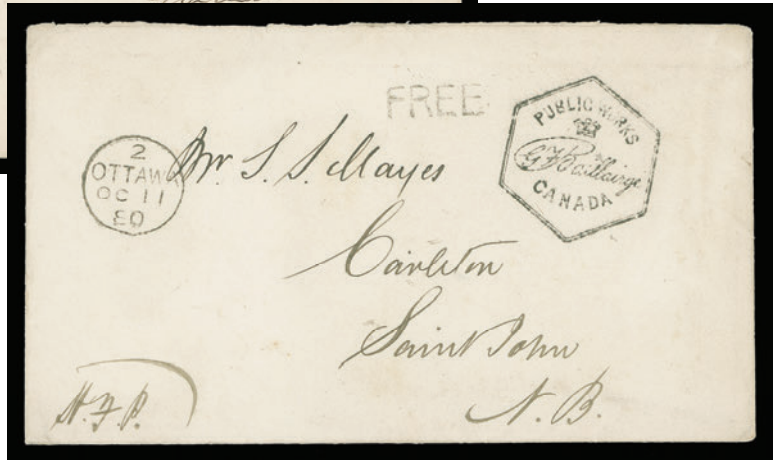 FREE
PUBLIC WORKS
G F Baillairgé
CANADA
2
OTTAWA
OC 11
80
Mr. S. S. Mayes
Carleton
Saint John
N. B.
H. F. P.